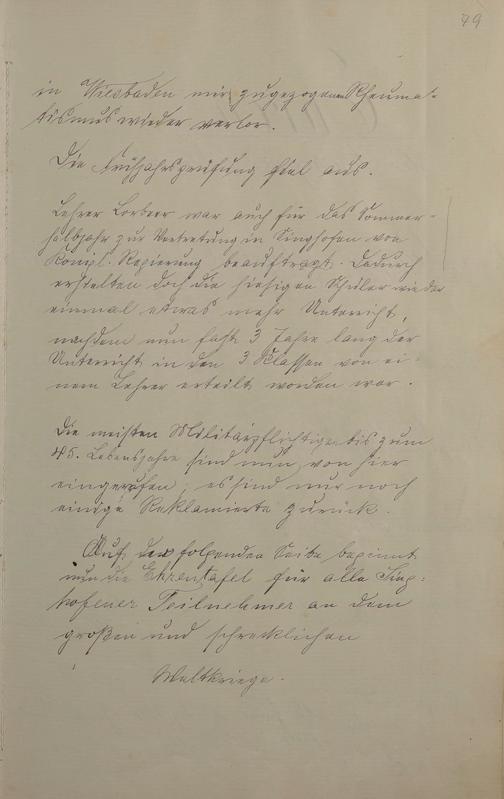 79
in Wiesbaden mir zugezogenen Rheuma-
tismus wieder verlor.
Die Frühjahrsprüfung fiel aus.
Lehrer Lorbeer war auch für das Sommer-
halbjahr zur Vertretung in Singhofen von
Königl. Regierung beauftragt. Dadurch
erhielten doch die hiesigen Schüler wieder
einmal etwas mehr Unterricht,
nachdem nun fast 3 Jahre lang der
Unterricht in den 3 Klassen von ei-
nem Lehrer erteilt worden war.
Die meisten Militärpflichtigen bis zum
45. Lebensjahre sind nun von hier
eingerufen; es sind nur noch
einige Reklamierte zurück.
Auf der folgenden Seite beginnt
nun die Ehrentafel für alle Sing-
hofener Teilnehmer an dem
großen und schrecklichen
Weltkriege.